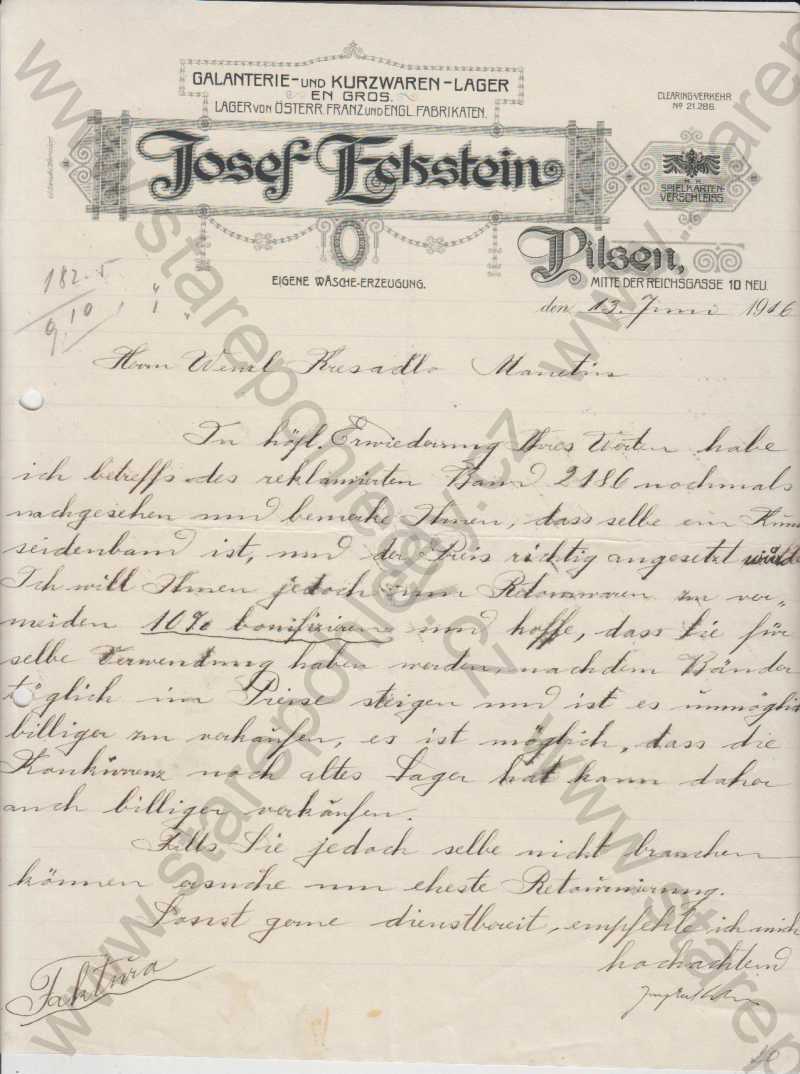 GALANTERIE- UND KURZWAREN-LAGER
EN GROS.
LAGER VON ÖSTERR. FRANZ UND ENGL. FABRIKATEN.
CLEARING-VERKEHR
No 21.286.
Josef Eckstein
K. K.
SPIELKARTEN-
VERSCHLEISS
EIGENE WÄSCHE-ERZEUGUNG.
Pilsen,
MITTE DER REICHSGASSE 10 NEU.
182.5
9.10
den 13. Juni 1916
Herrn Wenzl Kresadlo Manetin
In höfl. Erwiederung Ihres Werten habe
ich betreffs des reklamierten Band 2186 nochmals
nachgesehen und bemerke Ihnen, dass selbe ein Kunst
seidenband ist, und der Preis richtig angesetzt wurde
Ich will Ihnen jedoch um Retourwaren zu ver„
meiden 10% bonifizieren und hoffe, dass Sie für
selbe Verwendung haben werden, nachdem Bänder
täglich im Preise steigen und ist es unmöglich
billiger zu verkäufen, es ist möglich, dass die
Konkurrenz noch altes Lager hat kann daher
auch billiger verkäufen.
Falls Sie jedoch selbe nicht brauchen
können ersuche um eheste Retournierung.
Sonst gerne dienstbereit, empfehle ich mich
hochachtend
Faktura
www.starepohledy.cz